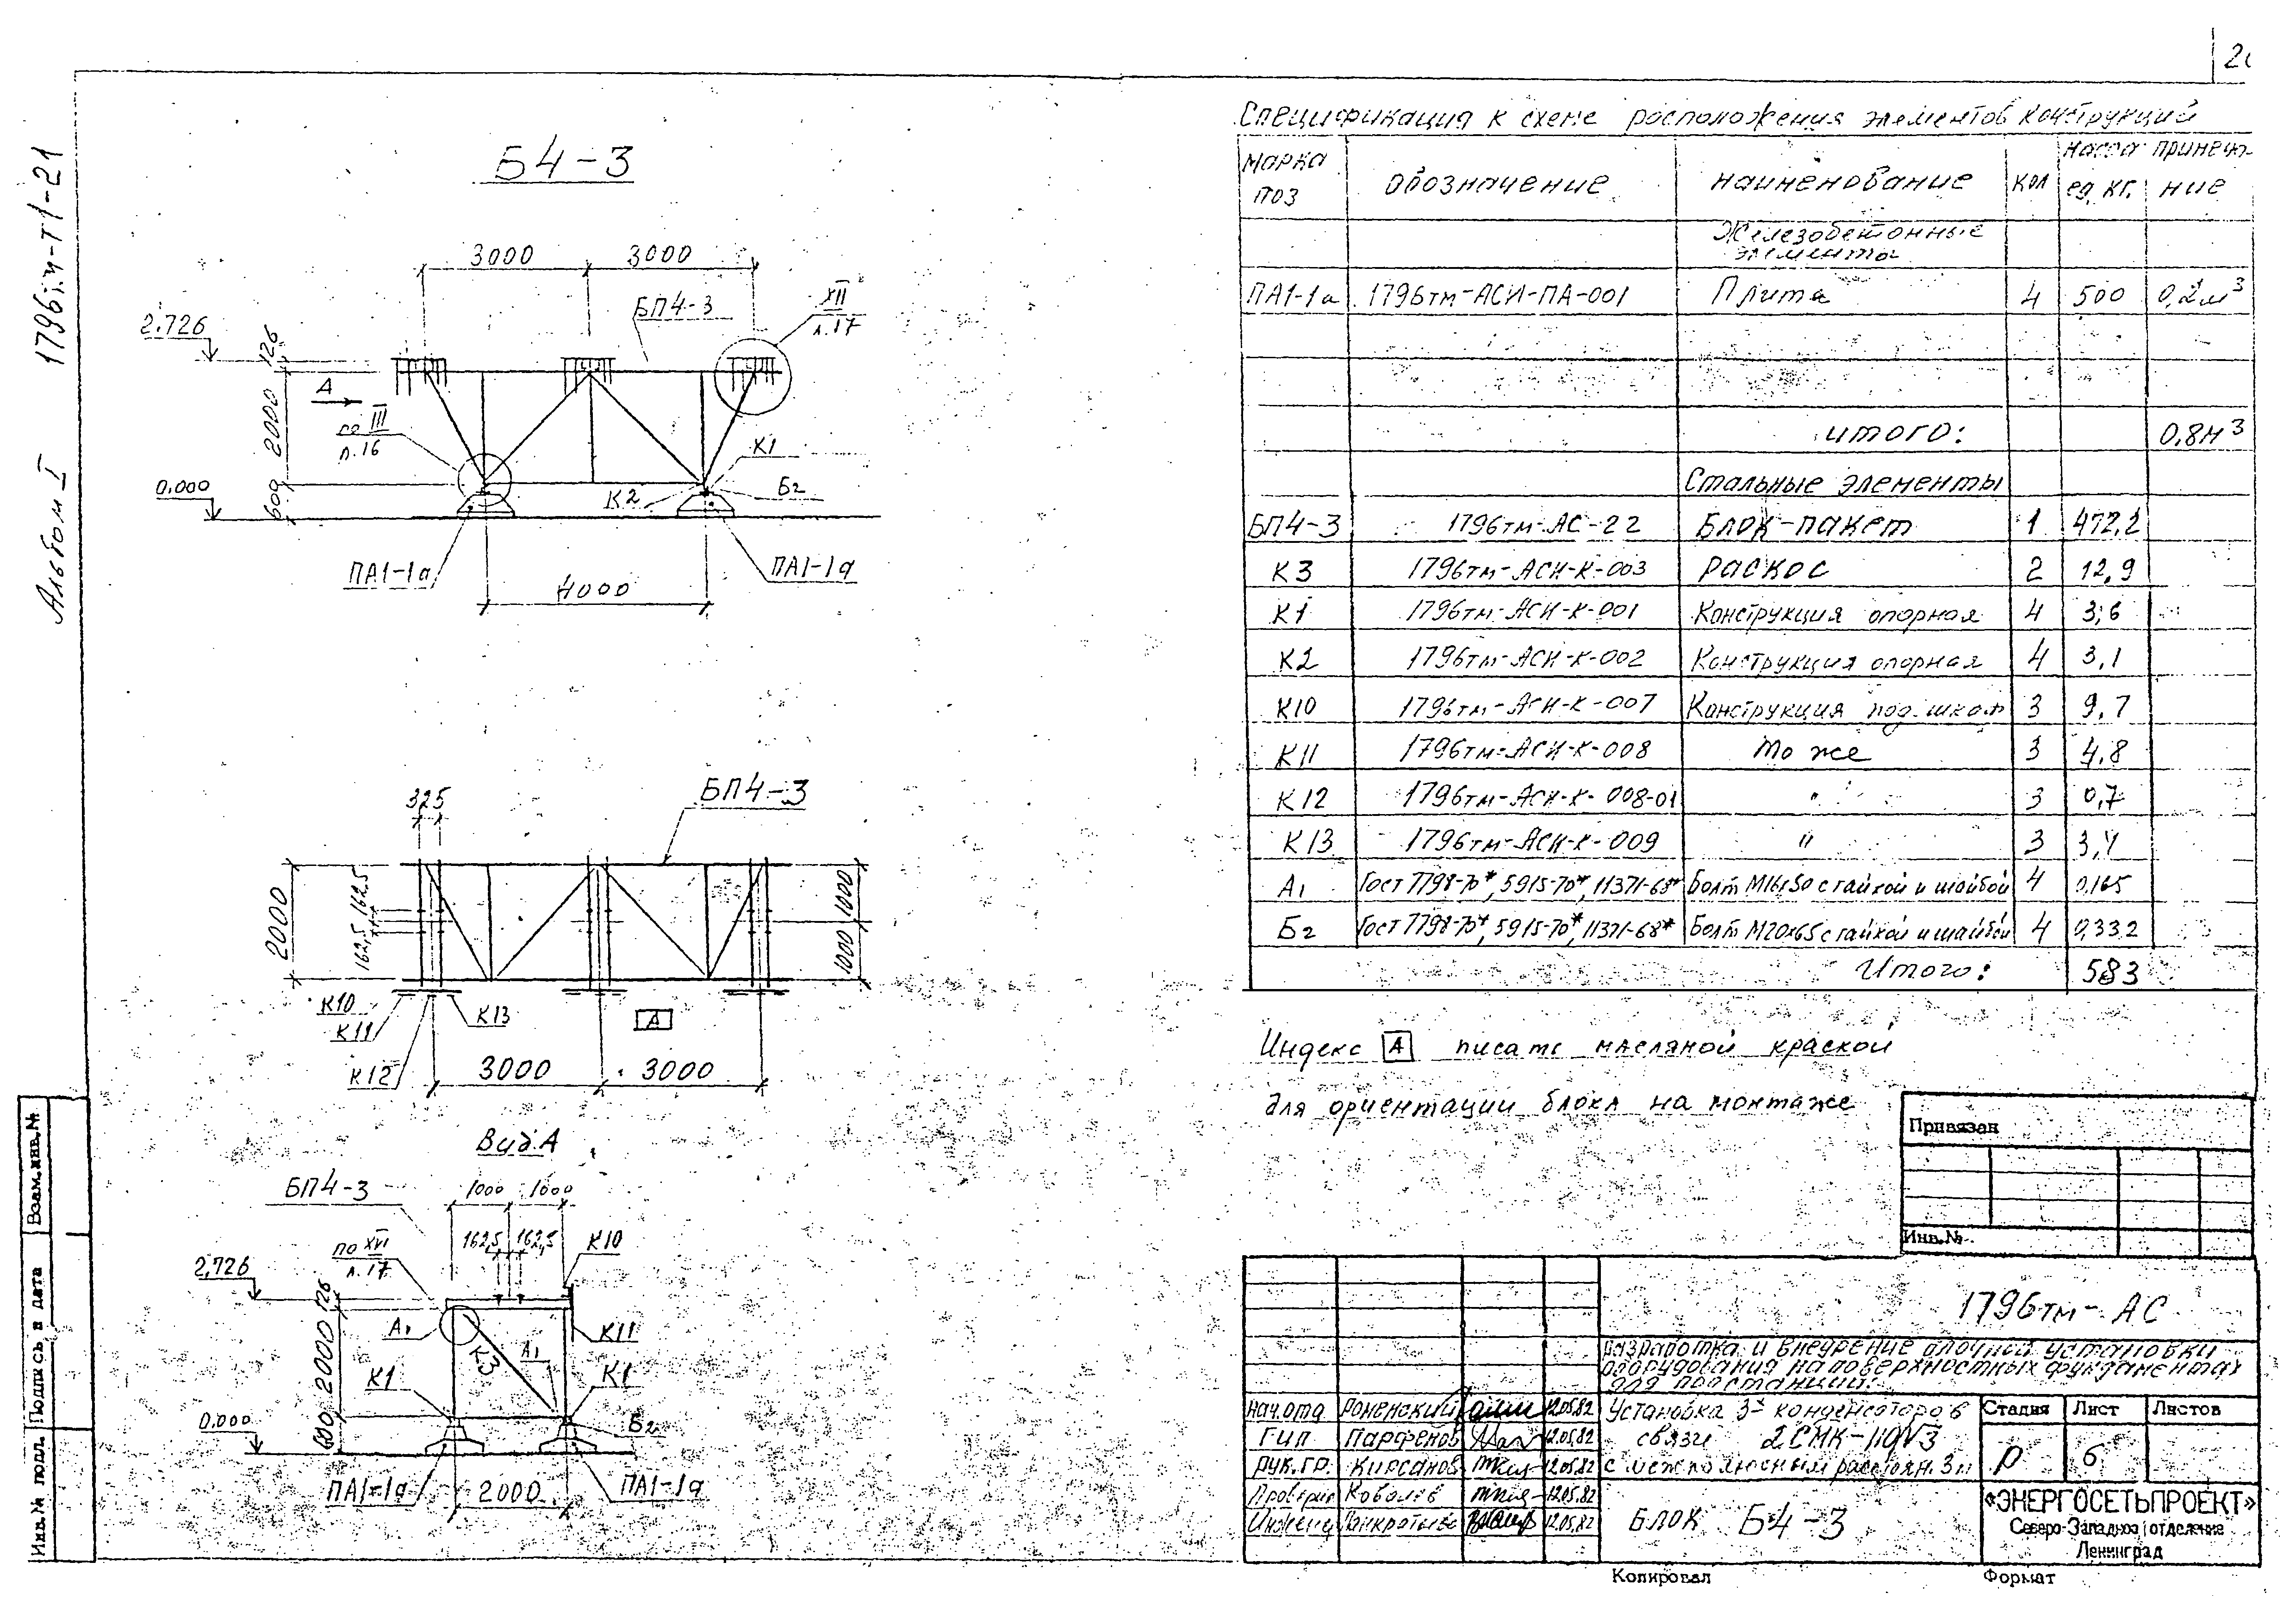 Альбом I 1796тм-Т1-21
Б4-3
3000 3000
БП4-3
XII
л.17
2.726
126
2000
600
А
по III
л.16
К1
К2
Б2
0.000
ПА1-1а
ПА1-1а
4000
325
БП4-3
2000
162,5 162,5
1000 1000
К10
К11
К12
К13
А
3000 3000
Вид А
БП4-3
1000 1000
162,5 162,5
К10
по XVI
л.17
2,726
126
2000
600
А1
К3
А1
К11
К1
К1
0.000
Б2
ПА1-1а
2000
ПА1-1а
Спецификация к схеме расположения элементов конструкций
Марка поз обозначение наименование кол масса ед. кг. примеча-ние
Железобетонные элементы
ПА1-1а 1796тм-АСИ-ПА-001 Плита 4 500 0,2м³
итого: 0,8м³
Стальные элементы
БП4-3 1796тм-АС-22 Блок-пакет 1 472,2
К3 1796тм-АСИ-К-003 Раскос 2 12,9
К1 1796тм-АСИ-К-001 Конструкция опорная 4 3,6
К2 1796тм-АСИ-К-002 Конструкция опорная 4 3,1
К10 1796тм-АСИ-К-007 Конструкция под шкаф 3 9,7
К11 1796тм-АСИ-К-008 То же 3 4,8
К12 1796тм-АСИ-К-008-01 " 3 0,7
К13 1796тм-АСИ-К-009 " 3 3,4
А1 Гост 7798-70*, 5915-70*, 11371-68* Болт М16х50 с гайкой и шайбой 4 0,165
Б2 Гост 7798-70*, 5915-70*, 11371-68* Болт М20х65 с гайкой и шайбой 4 0,332
Итого: 583
Индекс А писать масляной краской
для ориентации блока на монтаже
Привязан
Инв.№
1796тм-АС
Разработка и внедрение блочной установки
оборудования на поверхностных фундаментах
для подстанций.
Нач.отд Роменский 12.05.82
ГИП Парфенов 12.05.82
Рук.гр. Кирсанов 12.05.82
Проверил Ковалев 12.05.82
Инженер 12.05.82
Установка 3х конденсаторов
связи 2СМК-110√3
с межполюсным расстоян. 3м
Стадия Лист Листов
Р 6
Блок Б4-3
«ЭНЕРГОСЕТЬПРОЕКТ»
Северо-Западное отделение
Ленинград
Копировал Формат
Взам.инв.№
Подпись и дата
Инв.№ подл.